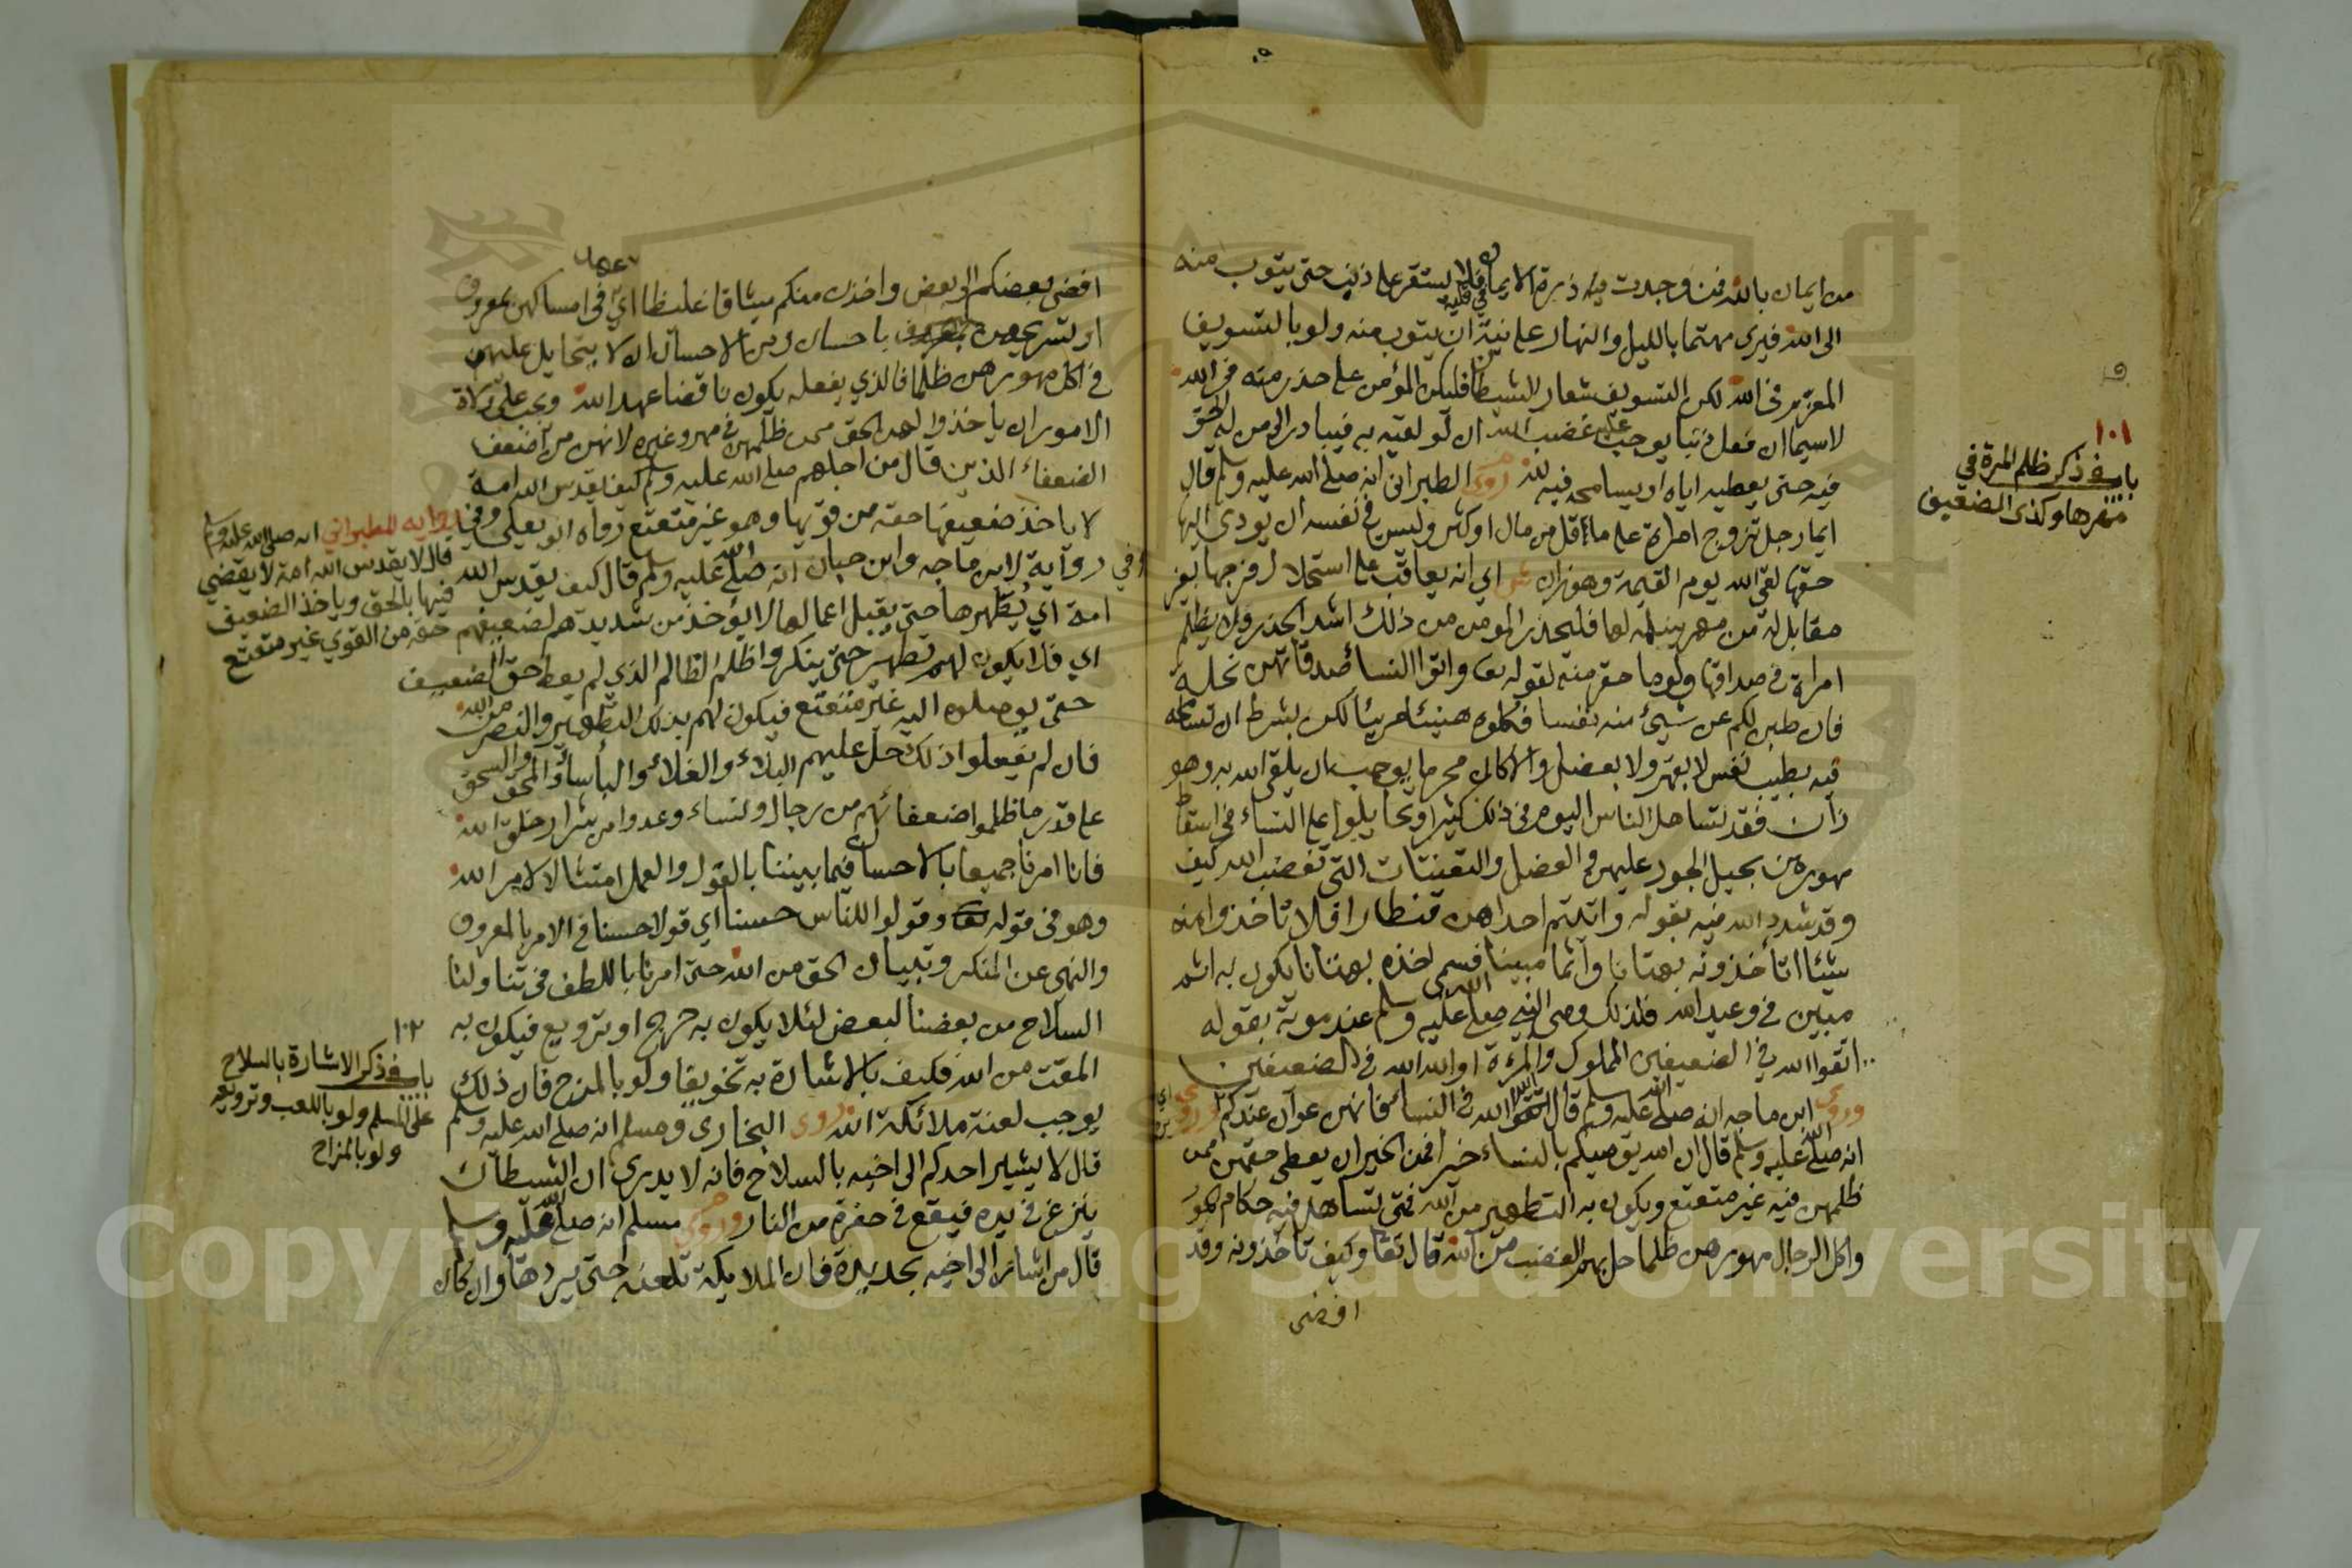 من ايمان بالله فمن وجدت فيه ذرة الايمان فلا يستقر على ذنب حتى يتوب منه
الى الله فيرى مهتما بالليل والنهار على نية ان يتوب منه ولو بالتسويف
في الله لكن التسويف شعار الشيطان فليكن المؤمن على حذر منه
لاسيما ان فعل ذنبا يوجب عليه غضب الله ان لو لقيه به فيبادر الى من له الحق
فيه حتى يعطيه اياه او يسامحه فيه لله روى الطبراني انه صلى الله عليه وسلم قال
ايما رجل تزوج امراة على ما قل من مال او كثر وليس في نفسه ان يودي اليها
حقها لقي الله يوم القيمة وهو زان اي انه يعاقب على استحلال فرجها بغير
مقابل له من مهر يسلمه لها فليحذر المؤمن من ذلك اشد الحذر ولا يظلم
امراة في صداقها ولوها حقر منه لقوله واتوا النسأ صدقاتهن نحلة
فان طبن لكم عن شيئ منه نفسا فكلوه هنيئا مريئا لكن بشرط ان
فيه بطيب نفس لا بقهر ولا بعضل والا كان محرما يوجب بان يلقى الله به وهو
زان فقد تساهل الناس اليوم في ذلك كثيرا وتحايلوا على النساء في اسقاط
مهورهن بحيل الجور عليهن والعضل والتعينتات التي تغضب الله كيف
وقد شدد الله فيه بقوله واتيتم احداهن قنطارا فلا تاخذوا منه
شيئا اتأخذونه بهتانا واثما مبينا فسمى اخذه بهتانا يكون به اثم
مبين في وعيد الله فلذلك وصى النبي صلى الله عليه وسلم عند موته بقوله
اتقوا الله في الضعيفين المملوك والمرءة او الله الله في الضعيفين
وروى ابن ماجه انه صلى الله عليه وسلم قال اتقوا الله في النسأ فانهن عوان عندكم
انه صلى الله عليه وسلم قال ان الله يوصيكم بالنساء خيرا فمن الخير ان يعطى حقهن ممن
ظلمهن فيه غير متعتع ويكون به التطهير من الله فمتى تساهل فيه حكام الجور
واكل الرجال مهورهن ظلما حل بهم الغضب من الله قال تعا وكيف تأخذونه وقد
افضى
١٠١
باب في ذكر ظلم المرة في
مهرها وكذى الضعيف
افضى بعضكم الى بعض واخذن منكم ميثاقا غليظا اي في امساكهن بمعروف
او تسريحهن باحسان ومن الاحسان ان لا يتحايل عليهن
في اكل مهورهن ظلما فالذي يفعله يكون ناقضا عهد الله ويجب على ولاة
الامور ان ياخذوا لهن الحق ممن ظلمهن في مهر وغيره لانهن من اضعف
الضعفاء الذين قال من اجلهم صلى الله عليه وسلم كيف يقدس الله امة
لا ياخذ ضعيفها حقه من قويها وهو غير متعتع رواه ابو يعلى
وفي رواية لابن ماجه وابن حبان انه صلى الله عليه وسلم قال كيف يقدس الله
امة اي يُطهرها حتى يقبل اعمالها لا يؤخذ من شديدهم لضعيفهم
اي فلا يكون لهم تطهير حتى ينكروا ظلم الظالم الذي لم يعط حق الضعيف
حتى يوصلوه اليه غير متعتع فيكون لهم بذلك التطهير والنصر من الله
فان لم يفعلوا ذلك حل عليهم البلاء والغلاء والبأسأ والمحق والسحق
على قدر ما ظلموا ضعفائهم من رجال ونساء وعدوا من شرار خلق الله
فانا امرنا جميعا بالاحسان فيما بيننا بالقول والعمل امتثالا لامر الله
وهو في قوله تعا وقولوا للناس حسنا اي قولا حسنا في الامر بالمعروف
والنهي عن المنكر وتبيان الحق من الله حتى امرنا باللطف في تناولنا
السلاح من بعضنا لبعض لئلا يكون به جرح او ترويع فيكون به
المقت من الله فكيف بالاشارة به تخويفا ولو بالمزح فان ذلك
يوجب لعنة ملائكة الله روى البخاري ومسلم انه صلى الله عليه وسلم
قال لا يشير احدكم الى اخيه بالسلاح فانه لا يدري ان الشيطان
ينزغ في يده فيقع في حفرة من النار وروى مسلم انه صلى الله عليه وسلم
قال من اشار الى اخيه بحديدة فان الملايكة تلعنه حتى يردها وان كان
وفي رواية للطبراني انه صلى الله عليه وسلم
قال لا يقدس الله امة لا يقضي
فيها بالحق وياخذ الضعيف
حقه من القوي غير متعتع
١٠٢
باب في ذكر الاشارة بالسلاح
على المسلم ولو باللعب وترويعه
ولو بالمزاح
Copyright © King Saud University